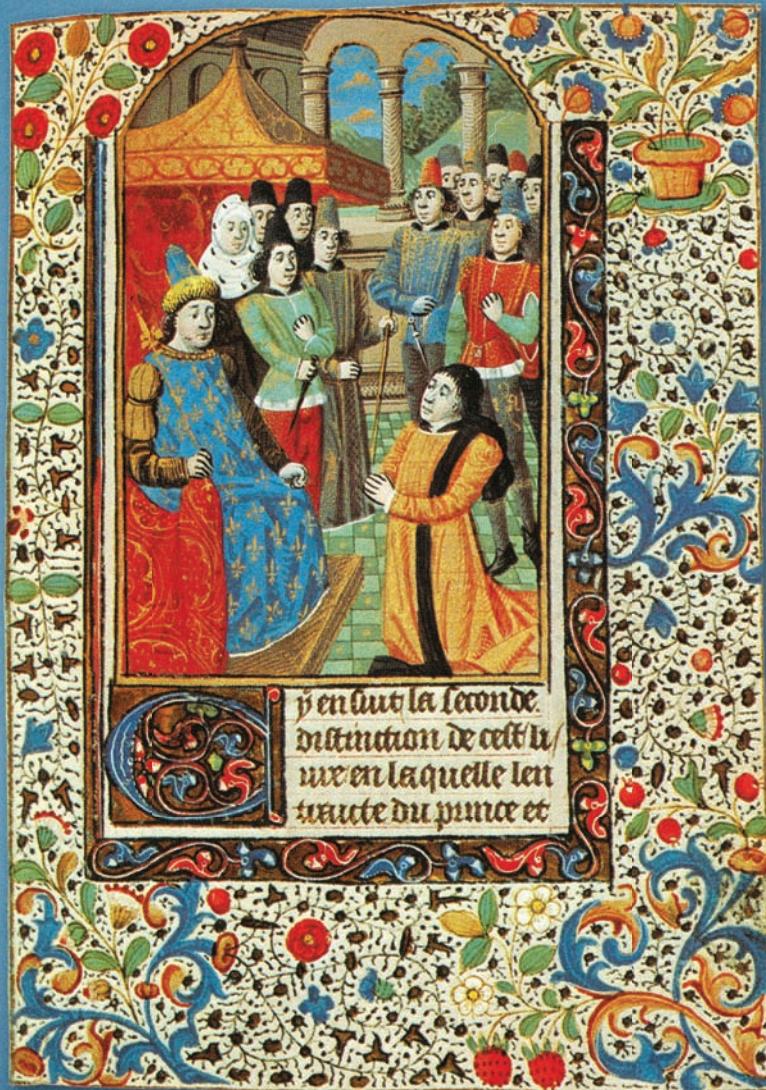 Cy ensuit la seconde.
distinction de cest li
ure en laquelle len
traicte du prince et